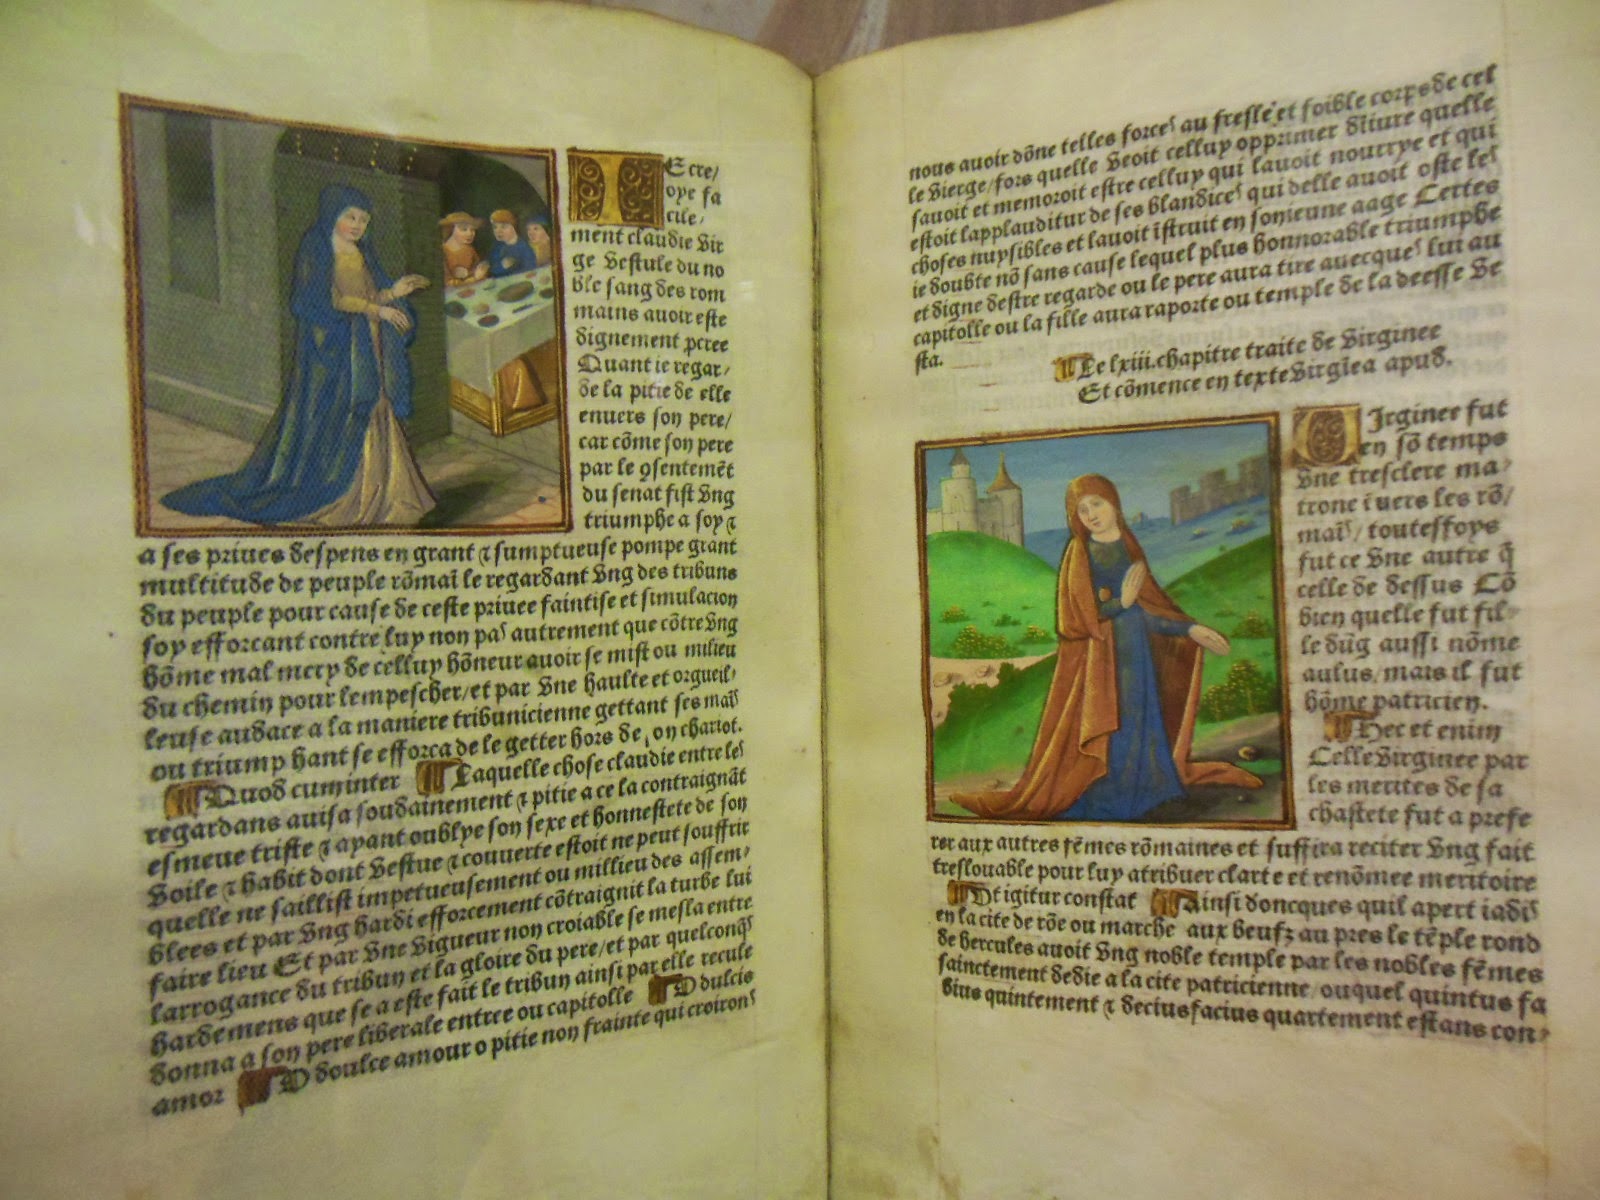 IE cre/
oye fa
cile/
ment claudie vir
ge vestule du no
ble sang des rom
mains auoir este
dignement pcree
Quant ie regar/
de la pitie de elle
enuers son pere/
car cõme son pere
par le ꝯsentemẽt
du senat fist vng
triumphe a soy ⁊
a ses priues despens en grant ⁊ sumptueuse pompe grant
multitude de peuple rõmaĩ le regardant vng des tribuns
du peuple pour cause de ceste priuee faintise et simulacion
soy efforcant contre luy non pas autrement que cõtre vng
hõme mal mery de celluy hõneur auoir se mist ou milieu
du chemin pour lempescher/et par vne haulte et orgueil/
leuse audace a la maniere tribunicienne gettant ses mais
ou triumphant se efforca de le getter hors de son chariot.
Quod cum inter Laquelle chose claudie entre les
regardans auisa soudainement ⁊ pitie a ce la contraignãt
esmeue triste ⁊ ayant oublye son sexe et honnestete de son
voile ⁊ habit dont vestue ⁊ couuerte estoit ne peut souffrir
quelle ne saillist impetueusement ou millieu des assem/
blees et par vng hardi efforcement cõtraignit la turbe lui
faire lieu Et par vne vigueur non croiable se mesla entre
larrogance du tribun et la gloire du pere/et par quelconqs
hardemens que se a este fait le tribun ainsi par elle recule
donna a son pere liberale entree ou capitolle O dulcis
amor O doulce amour o pitie non frainte qui croirons
nous auoir dõne telles forces au fresle et foible corps de cel
le vierge/fors quelle veoit celluy opprimer diniure quelle
sauoit et memoroit estre celluy qui lauoit nourrye et qui
estoit lapplauditur de ses blandices qui delle auoit oste les
choses nuysibles et lauoit ĩstruit en son ieune aage Certes
ie doubte nõ sans cause lequel plus honnorable triumphe
et digne destre regarde ou le pere aura tire auecques lui au
capitolle ou la fille aura raporte ou temple de la deesse ve
sta.
Le lxiii. chapitre traite de virginee
Et cõmence en texte virgĩea apud.
VIrginee fut
en sõ temps
vne tresclere ma/
trone ĩuers les rõ/
mais/ toutesfoys
fut ce vne autre q̃
celle de dessus Cõ
bien quelle fut fil
le dũg aussi nõme
aulus/mais il fut
hõme patricien.
Hec et enim
Celle virginee par
les merites de sa
chastete fut a prefe
rer aux autres fẽmes rõmaines et suffira reciter vng fait
treslouable pour luy atribuer clarte et renõmee meritoire
Vt igitur constat Ainsi doncques quil apert iadis
en la cite de rõe ou marche aux beufz au pres le tẽple rond
de hercules auoit vng noble temple par les nobles fẽmes
sainctement dedie a la cite patricienne/ouquel quintus fa
bius quintement ⁊ decius facius quartement estans con/